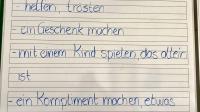 - helfen, trösten
- ein Geschenk machen
- mit einem Kind spielen, das allein
ist
- ein Kompliment machen, etwas